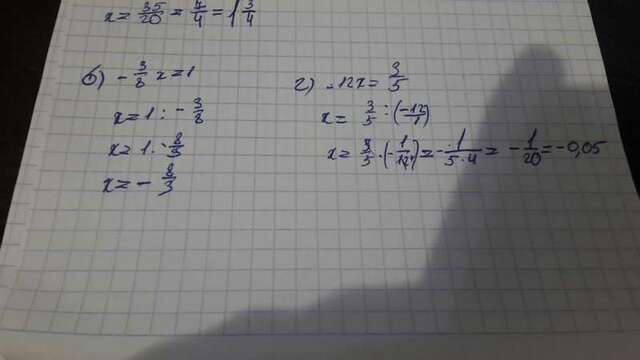 x = 35/20 = 7/4 = 1 3/4
б) - 3/8 x = 1
x = 1 : - 3/8
x = 1 · - 8/3
x = - 8/3
г) -12x = 3/5
x = 3/5 : (-12/1)
x = 3/5 · (-1/12) = - 1/5·4 = - 1/20 = -0,05